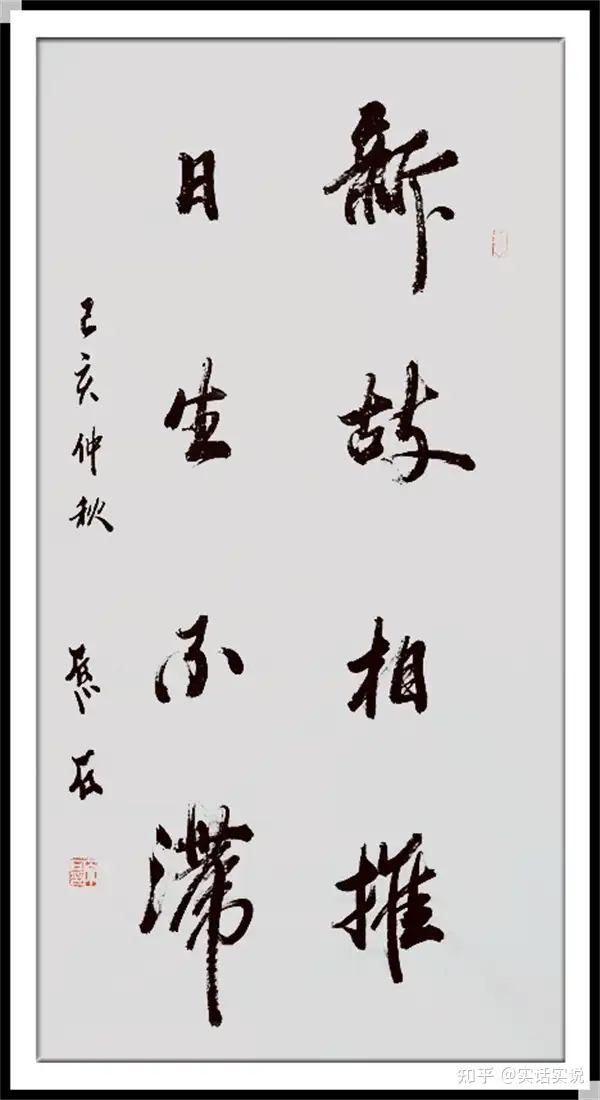 新故相推
日生不滞
己亥仲秋
知乎 @实话实说